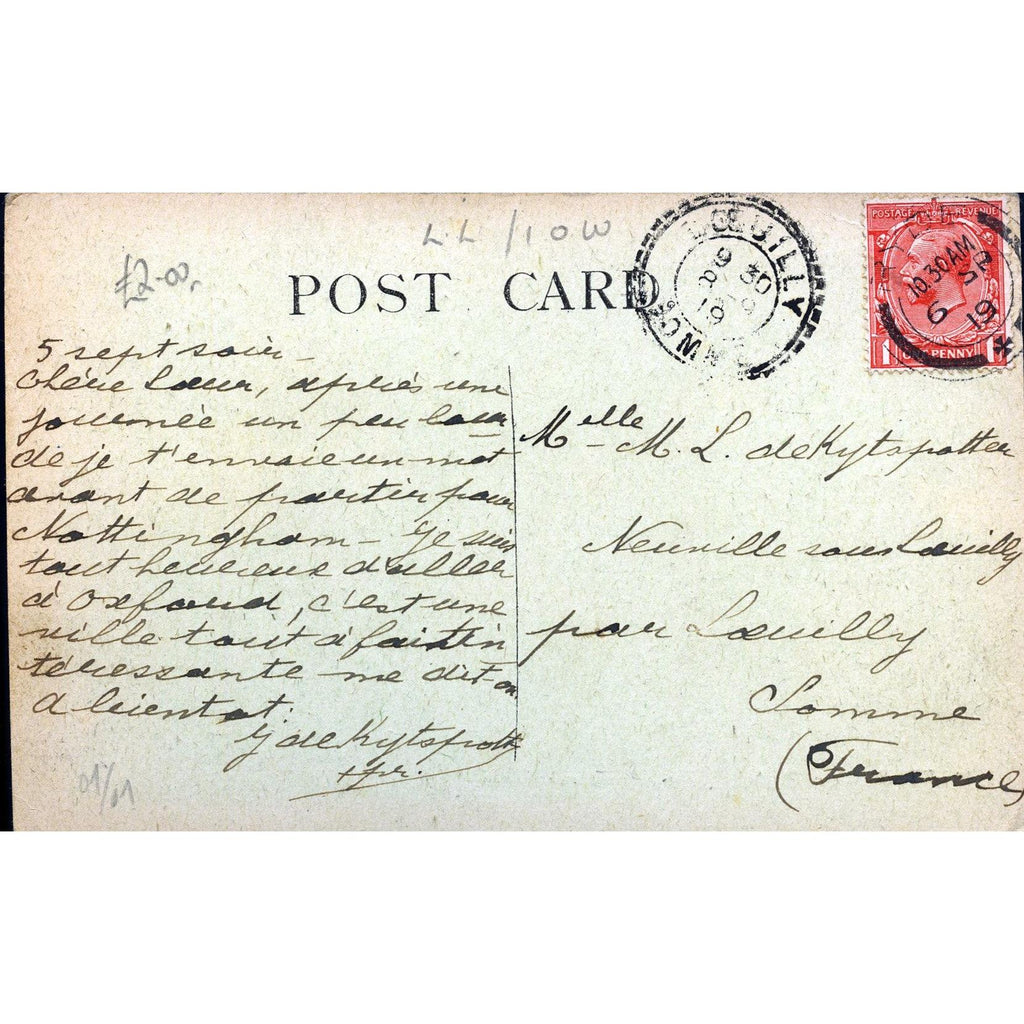 LL/IOW
£2-00
POST CARD
LŒUILLY
9 30
19
SOMME
POSTAGE REVENUE
10.30AM
6
19
ONE PENNY
5 sept soir -
Chère Sœur, après une
journée un peu lour
de je t'envoie un mot
avant de partir pour
Nottingham - Je suis
tout heureux d'aller
à Oxford, c'est une
ville tout à fait in
téressante me dit on.
A bientot.
G de Kytspotter
01/01
Melle M. L. de Kytspotter
Neuville sous Lœuilly
par Lœuilly
Somme
(France)